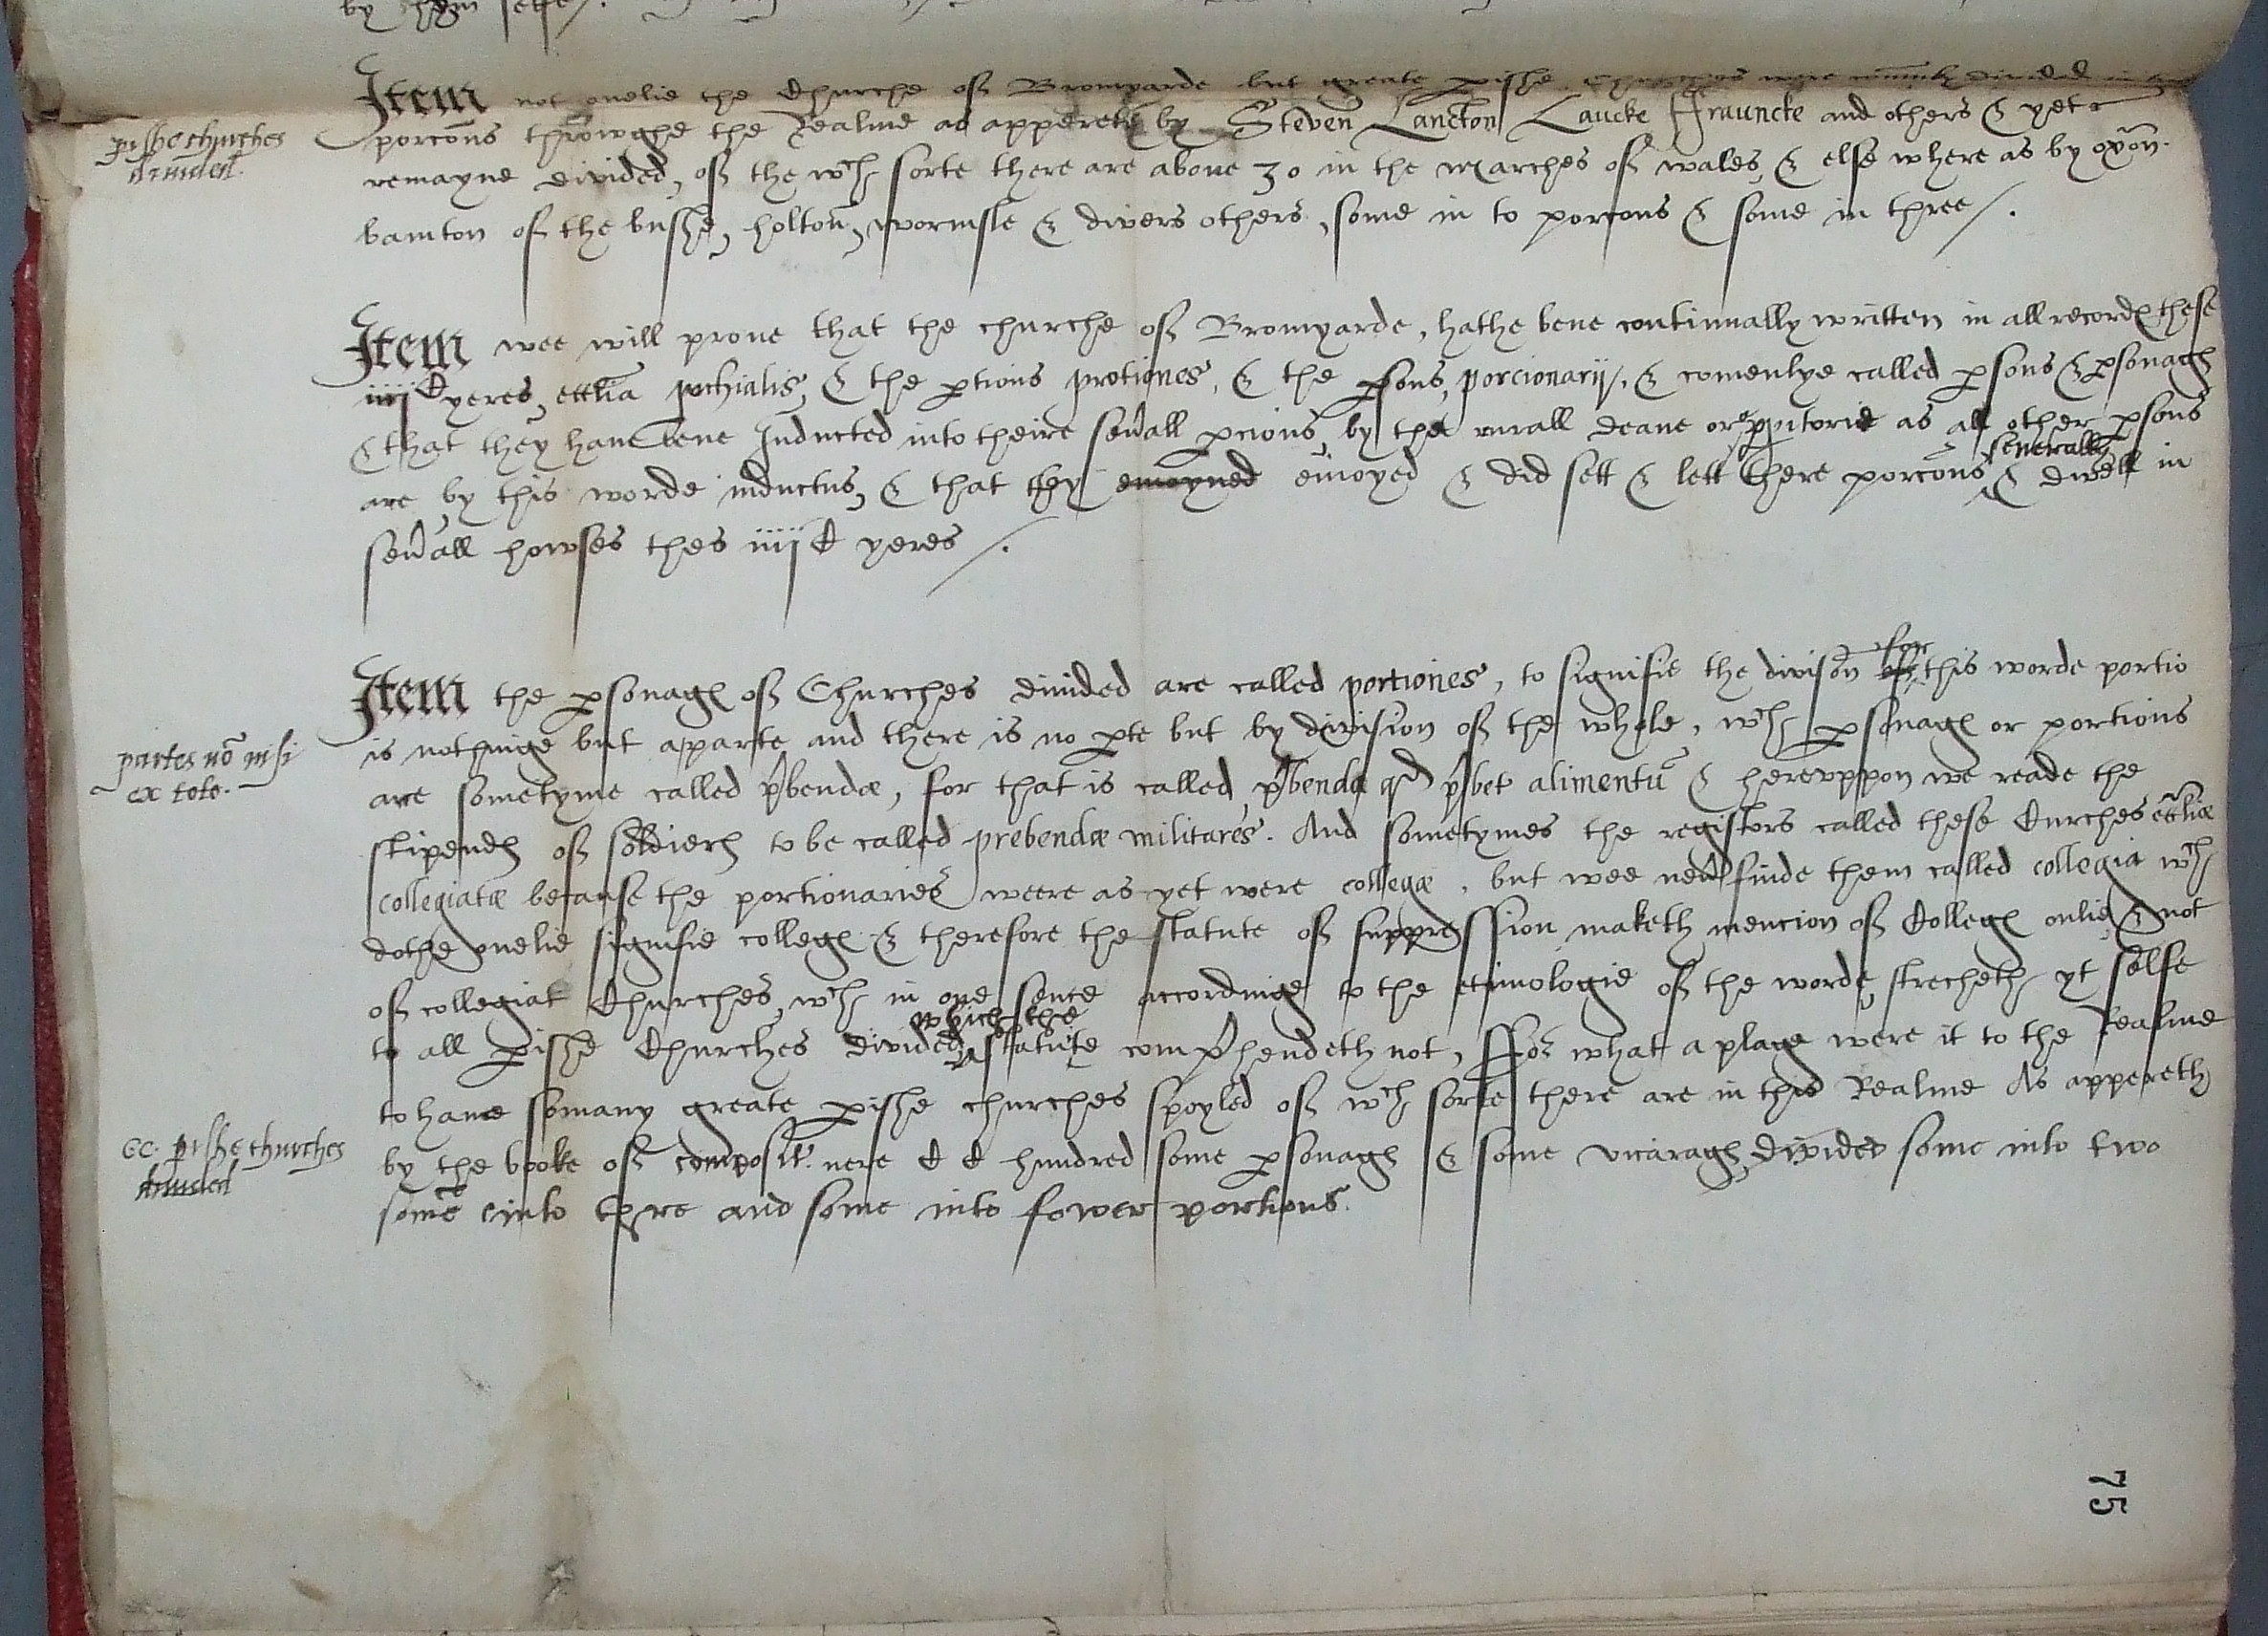 by them selfe /.
Item not onelie the Churche of Bromyarde but greate pishe Churches were divided in
pishe churches
divided.
porcons throwghe the Realme as appereth by Steven Lancton Laucke Frauncke and others & yet
remayne divided, of the wch sorte there are above 30 in the marches of wales, & else where as by oxōn.
bamton of the bushe, holton, wormsle & divers others, some in to porcons & some in three /.
Item wee will prove that the churche of Bromyarde, hathe bene continually written in all records these
iiij C yeres, eccl̄ia pochialis, & the ptions protiones, & the psons, porcionarij, & comenlye called psons & psonages
& that they have bene Inducted into theire sevall pcions, by the rurall deane or apparitorie as all other psons
are by this worde inductus, & that they enioyned enioyed & did sett & lett there porcons severally & dwell in
sevall howses thes iiij C yeres /.
Item the psonages of Churches divided are called portiones, to signifie the division of for this worde portio
partes nō nisi
ex toto.
is nothinge but a parte and there is no pte but by division of the whole, wch psonages or portions
are sometyme called p̄bendæ, for that is called p̄benda qd p̄bet alimentū & herevppon we reade the
stipendes of soldiers to be called prebendæ militares. And sometymes the registors called these Churches eccl̄iæ
collegiatæ because the portionaries weere as yet were collegæ, but wee nev̄ finde them called collegia wch
dothe onelie signifie colleges & therefore the statute of suppression maketh mencion of Colleges onlie & not
of collegiat Churches, wch in one sence accordinge to the etimologie of the worde, strecheth yt selfe
to all pishe Churches divided which the statute comp̄hendeth not, For what a plage were it to the Realme
to have somany greate pishe churches spoyled of wch sorte there are in this Realme As appereth
cc. pishe churches
divided
by the booke of composit. nere C C hundred some psonages & some vicarages divided some into two
some into thre and some into fower portions.
75